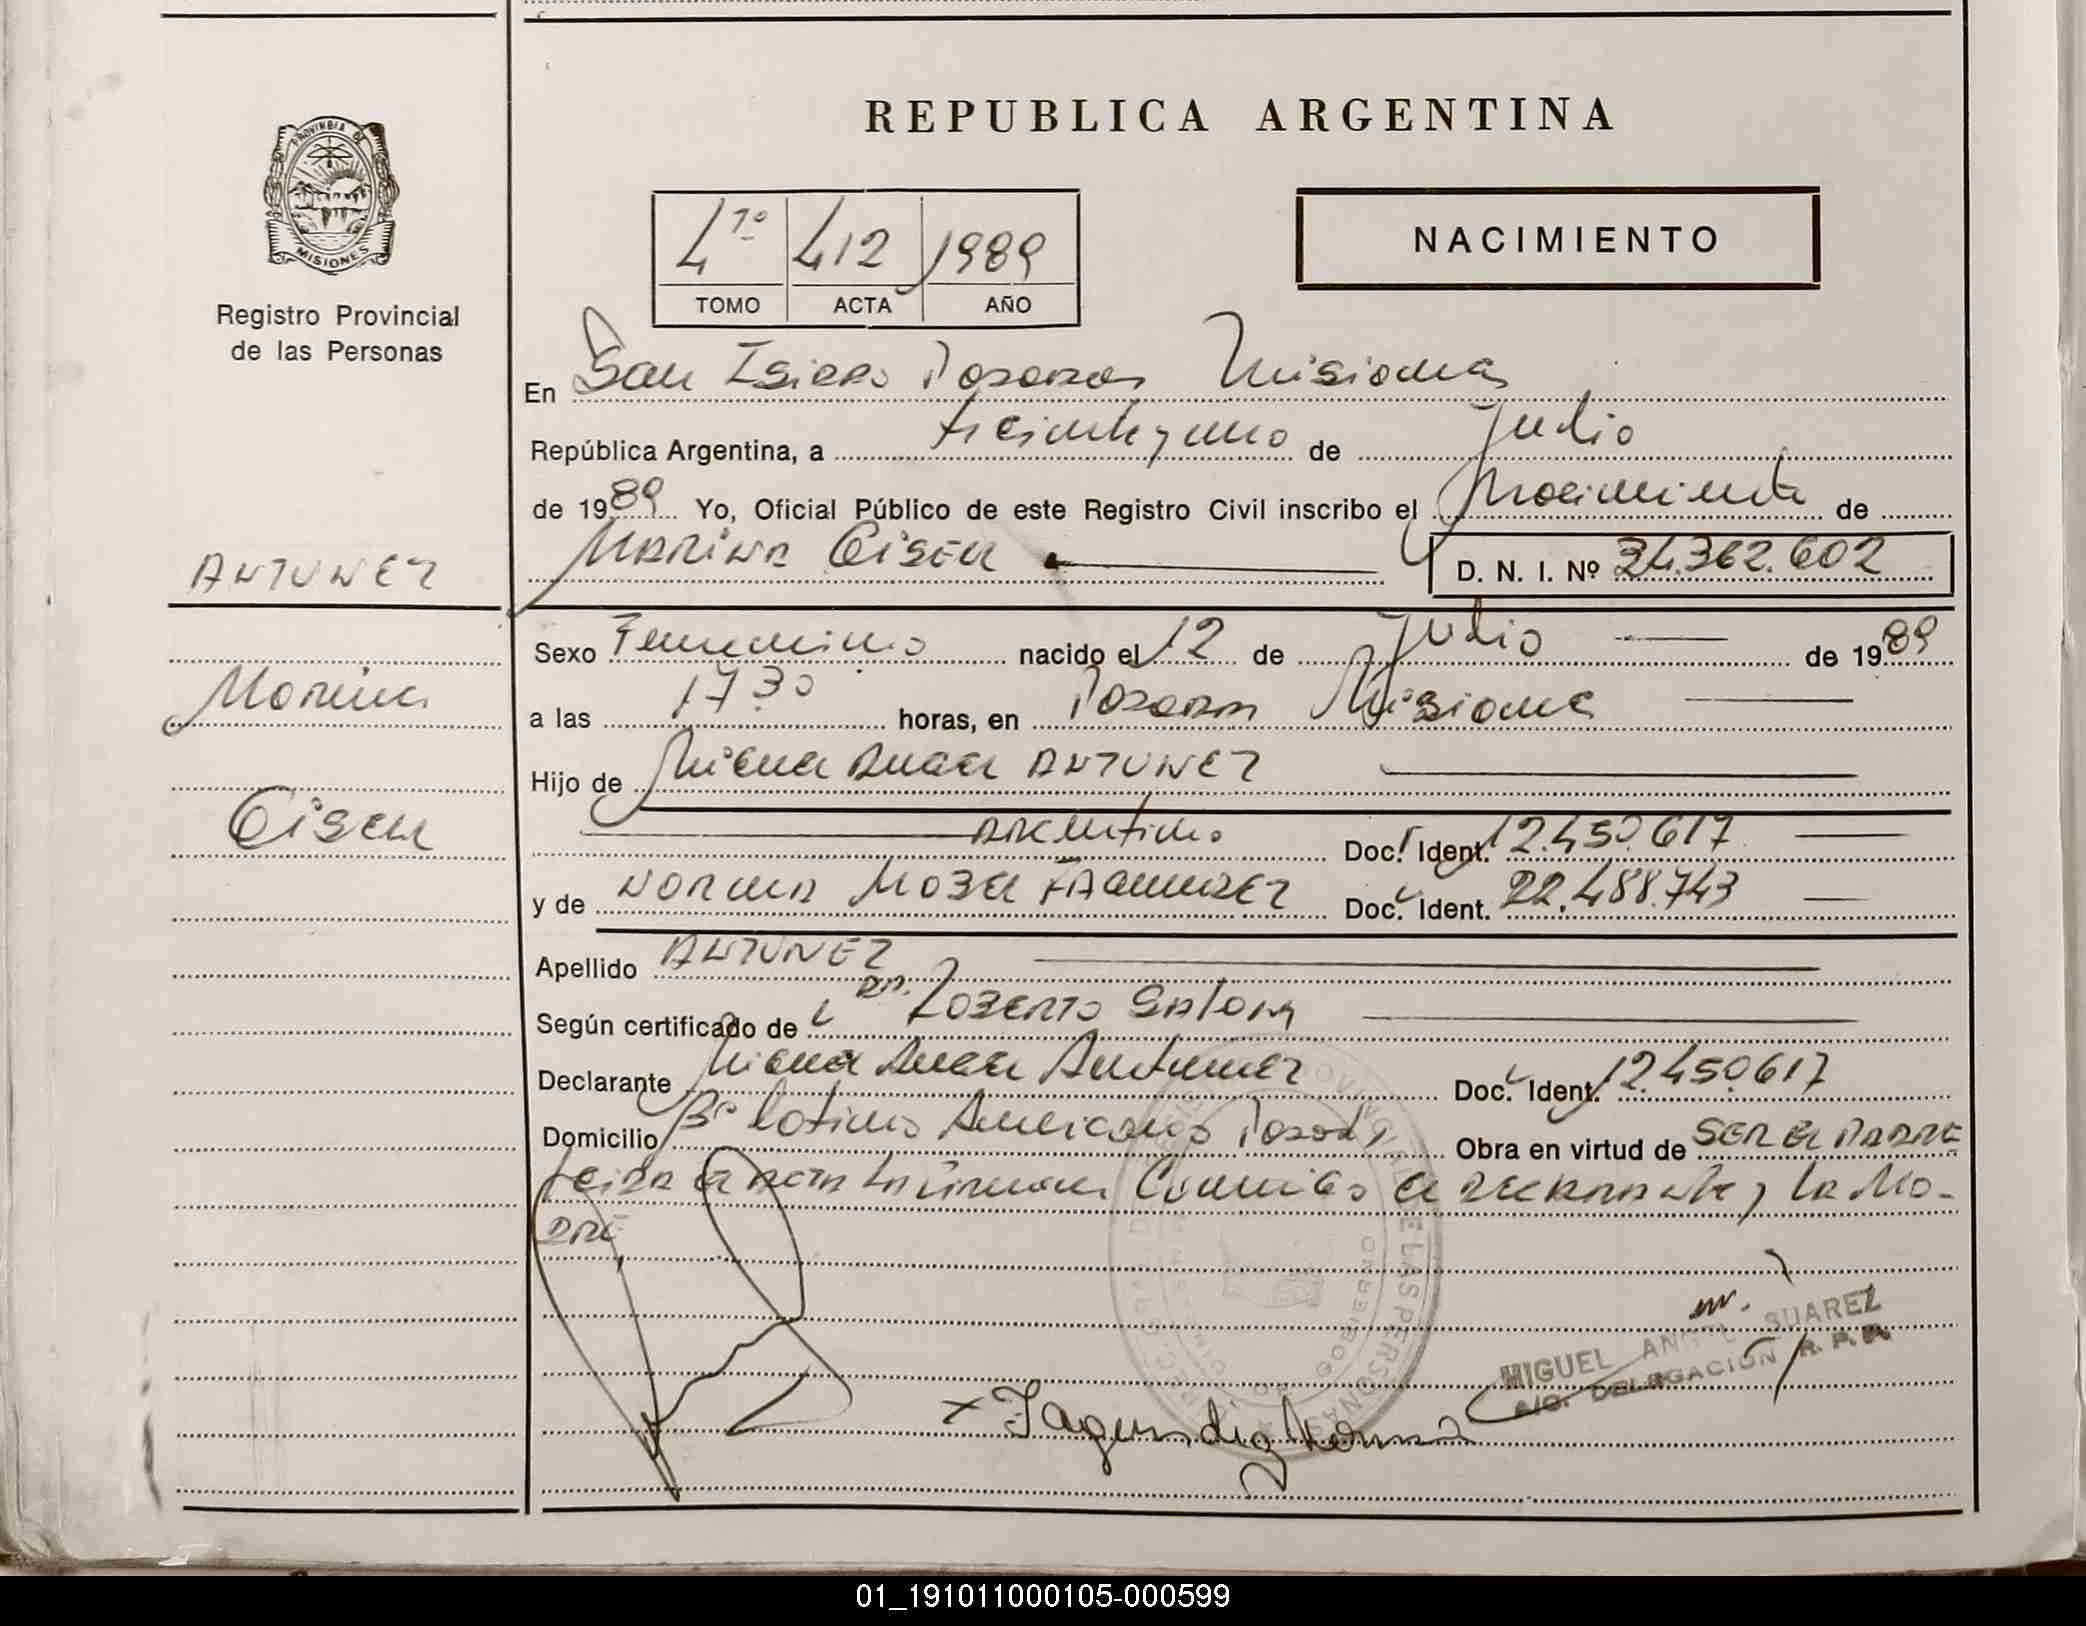 REPUBLICA ARGENTINA
PROVINCIA DE
MISIONES
Registro Provincial
de las Personas
4 to 412 1989
TOMO ACTA AÑO
NACIMIENTO
En San Isidro Posadas Misiones
República Argentina, a treintayuno de Julio
de 1989 Yo, Oficial Público de este Registro Civil inscribo el Nacimiento de
Marina Gisela
D. N. I. Nº 34.362.602
ANTUNEZ
Marina
Gisela
Sexo Femenino nacido el 12 de Julio de 1989
a las 17 30 horas, en Posadas Misiones
Hijo de Miguel Angel ANTUNEZ
Argentino Doc. Ident. 12.450.617
y de NORMA Doc. Ident. 22.488.743
Apellido ANTUNEZ
Según certificado de Dr. Roberto
Declarante Miguel Angel Antunez Doc. Ident. 12.450617
Domicilio Bº Latino Americano Posadas Obra en virtud de SER EL PADRE
Leida el acta la firman Conmigo el declarante y la Ma-
dre
MIGUEL ANGEL SUAREZ
DELEGACION R. P. P.
x Norma
01_191011000105-000599